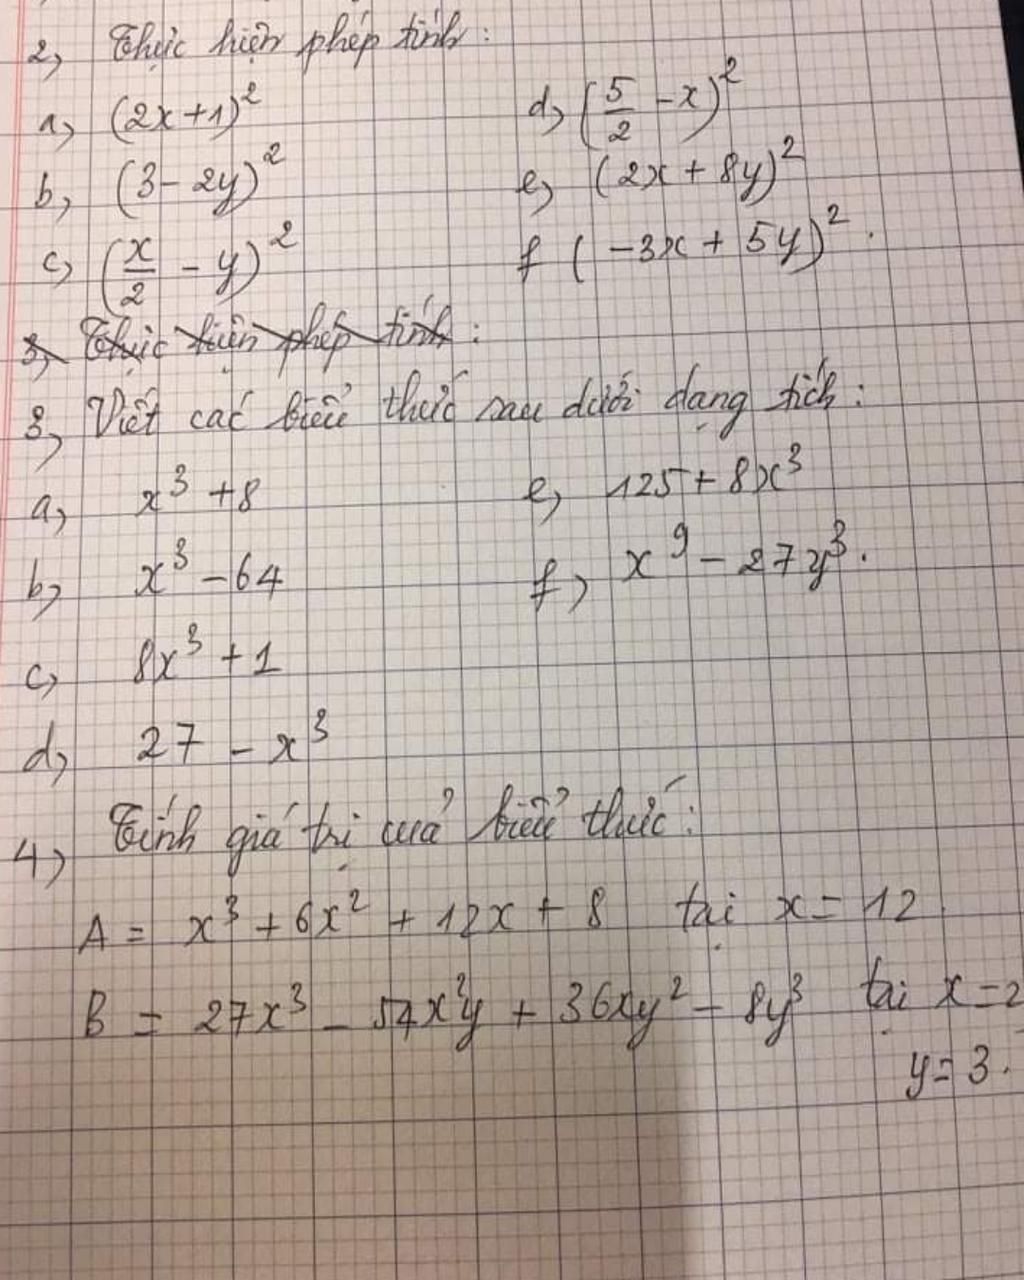 2, Thực hiện phép tính:
a, (2x+1)² d, (5/2 - x)²
b, (3 - 2y)² e, (2x + 8y)²
c, (x/2 - y)² f (-3x + 5y)².
3, Thực hiện phép tính:
3, Viết các biểu thức sau dưới dạng tích:
a, x³ + 8 e, 125 + 8x³
b, x³ - 64 f, x⁹ - 27y³.
c, 8x³ + 1
d, 27 - x³
4, Tính giá trị của biểu thức:
A = x³ + 6x² + 12x + 8 tại x = 12
B = 27x³ - 54x²y + 36xy² - 8y³ tại x = 2
y = 3.